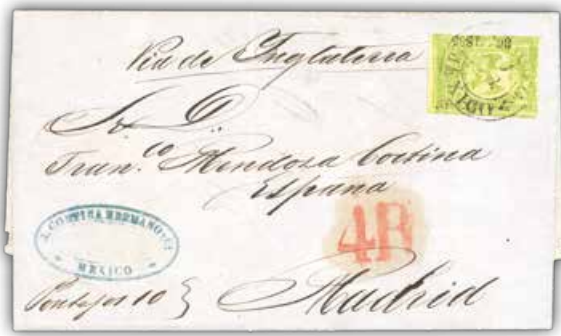 Via de Inglaterra
Sr. D.
Fran.co Mendoza Cortina
España
4R
J. CORTINA HERMANO
MEXICO
Pontejos 10
Madrid